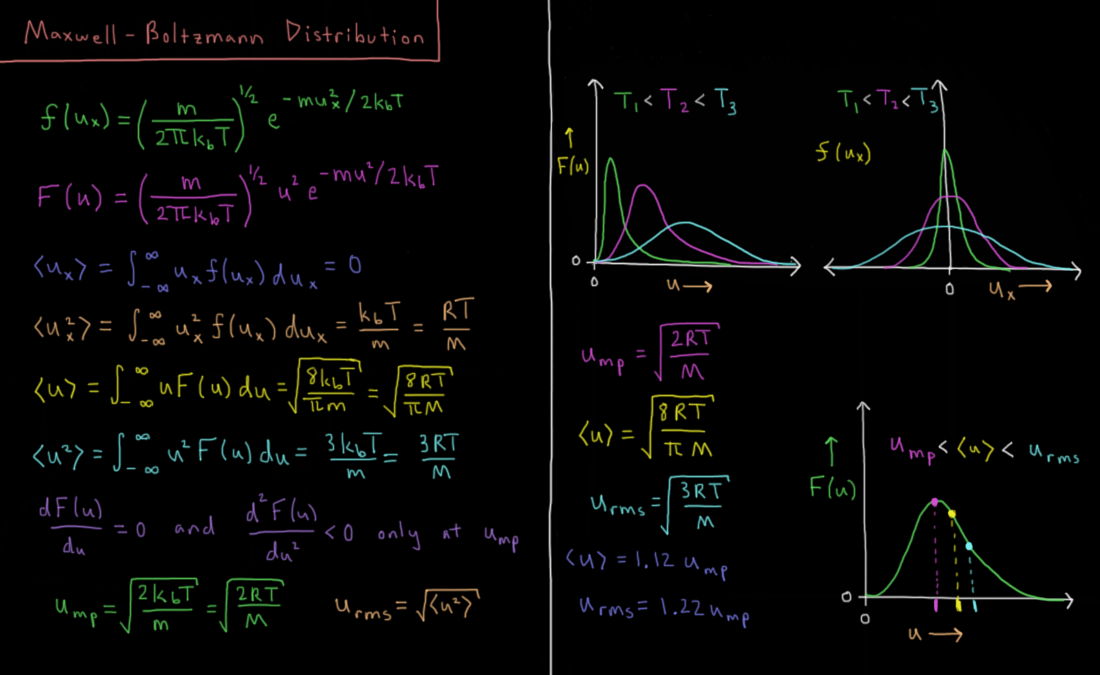 Maxwell-Boltzmann Distribution
f(uₓ) = (m / 2πk_bT)^1/2 e^-muₓ²/2k_bT
F(u) = (m / 2πk_bT)^1/2 u² e^-mu²/2k_bT
⟨uₓ⟩ = ∫_-∞^∞ uₓ f(uₓ) duₓ = 0
⟨uₓ²⟩ = ∫_-∞^∞ uₓ² f(uₓ) duₓ = k_bT / m = RT / M
⟨u⟩ = ∫_-∞^∞ u F(u) du = √(8k_bT / πm) = √(8RT / πM)
⟨u²⟩ = ∫_-∞^∞ u² F(u) du = 3k_bT / m = 3RT / M
dF(u) / du = 0 and d²F(u) / du² < 0 only at u_mp
u_mp = √(2k_bT / m) = √(2RT / M)
u_rms = √⟨u²⟩
T₁ < T₂ < T₃
↑
F(u)
0
0
u →
T₁ < T₂ < T₃
f(uₓ)
0
uₓ →
u_mp = √(2RT / M)
⟨u⟩ = √(8RT / πM)
u_rms = √(3RT / M)
⟨u⟩ = 1.12 u_mp
u_rms = 1.22 u_mp
u_mp < ⟨u⟩ < u_rms
↑
F(u)
0
0
u →